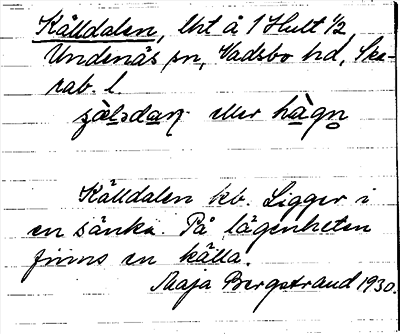 Källdalen, lht å 1 Hult 1/2,
Undenäs sn, Vadsbo hd, Ska-
rab. l.
eller hàgn
Källdalen kb. Ligger i
en sänka. På lägenheten
finns en källa.
Maja Bergstrand 1930.